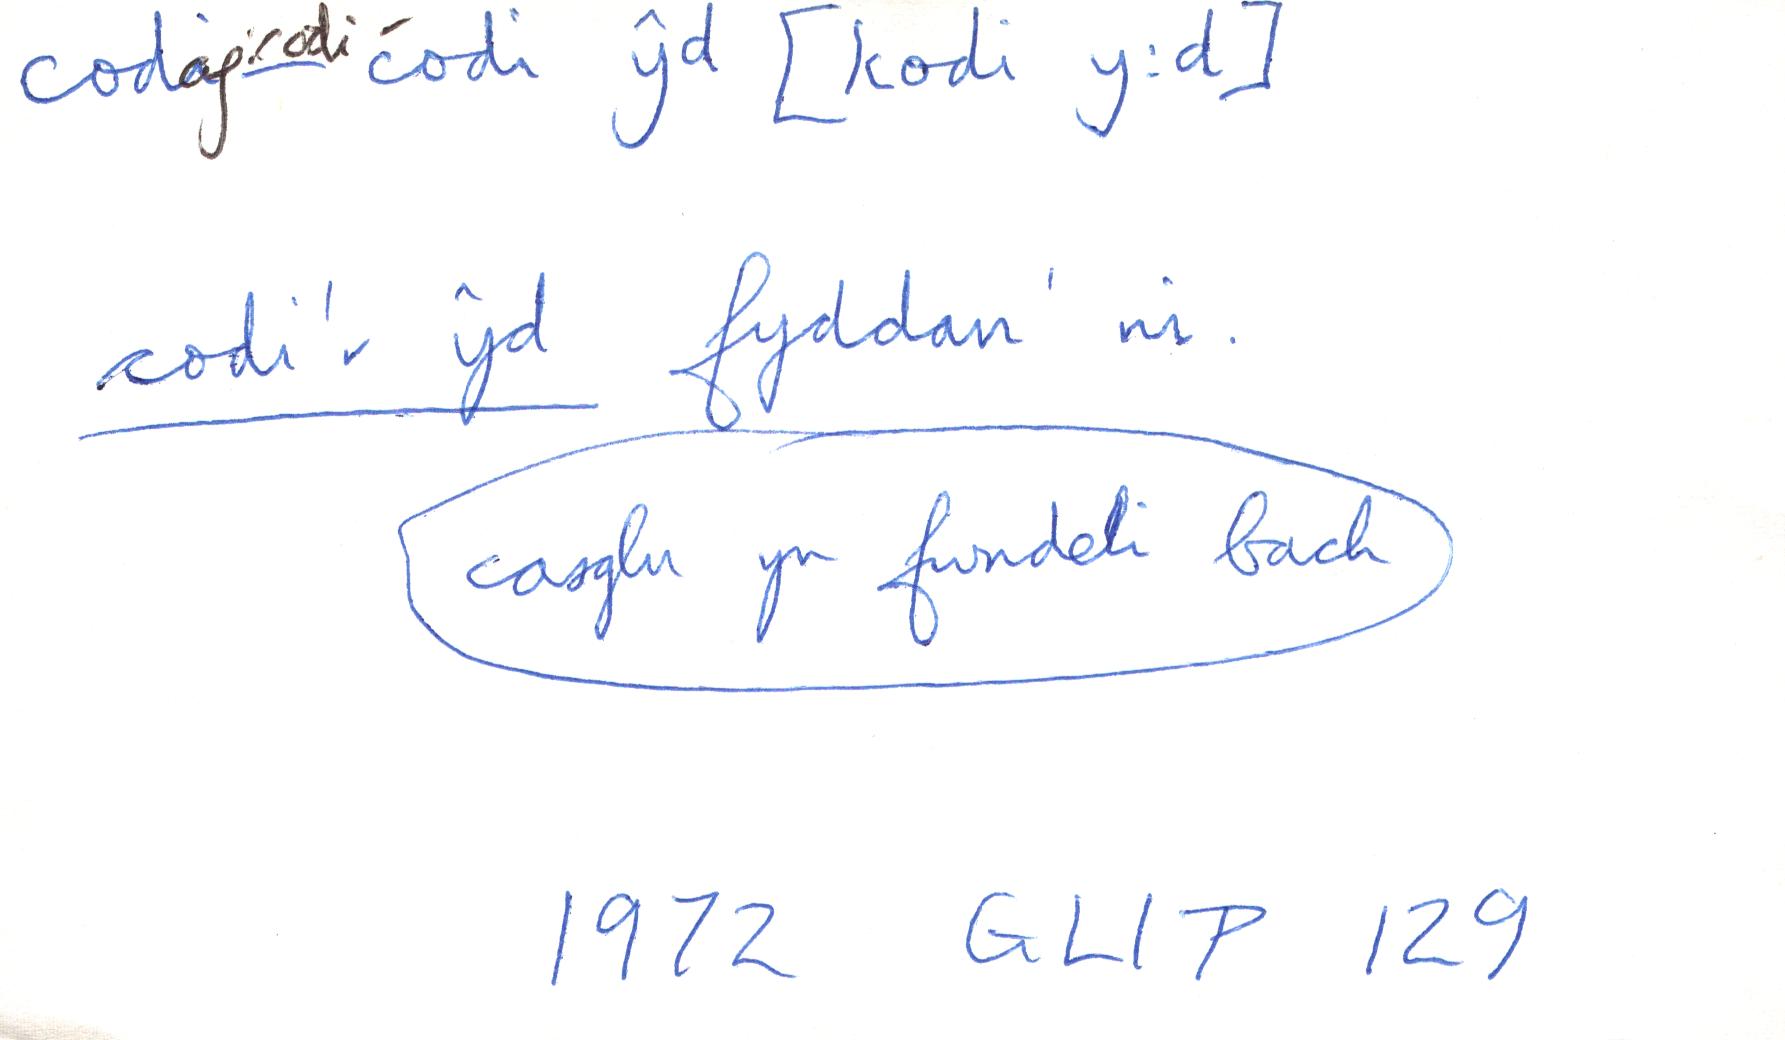 codaf: codi - codi ŷd [kodi y:d]
codi'r ŷd fyddan' ni.
casglu yn fwndeli bach
1972 GLlP 129